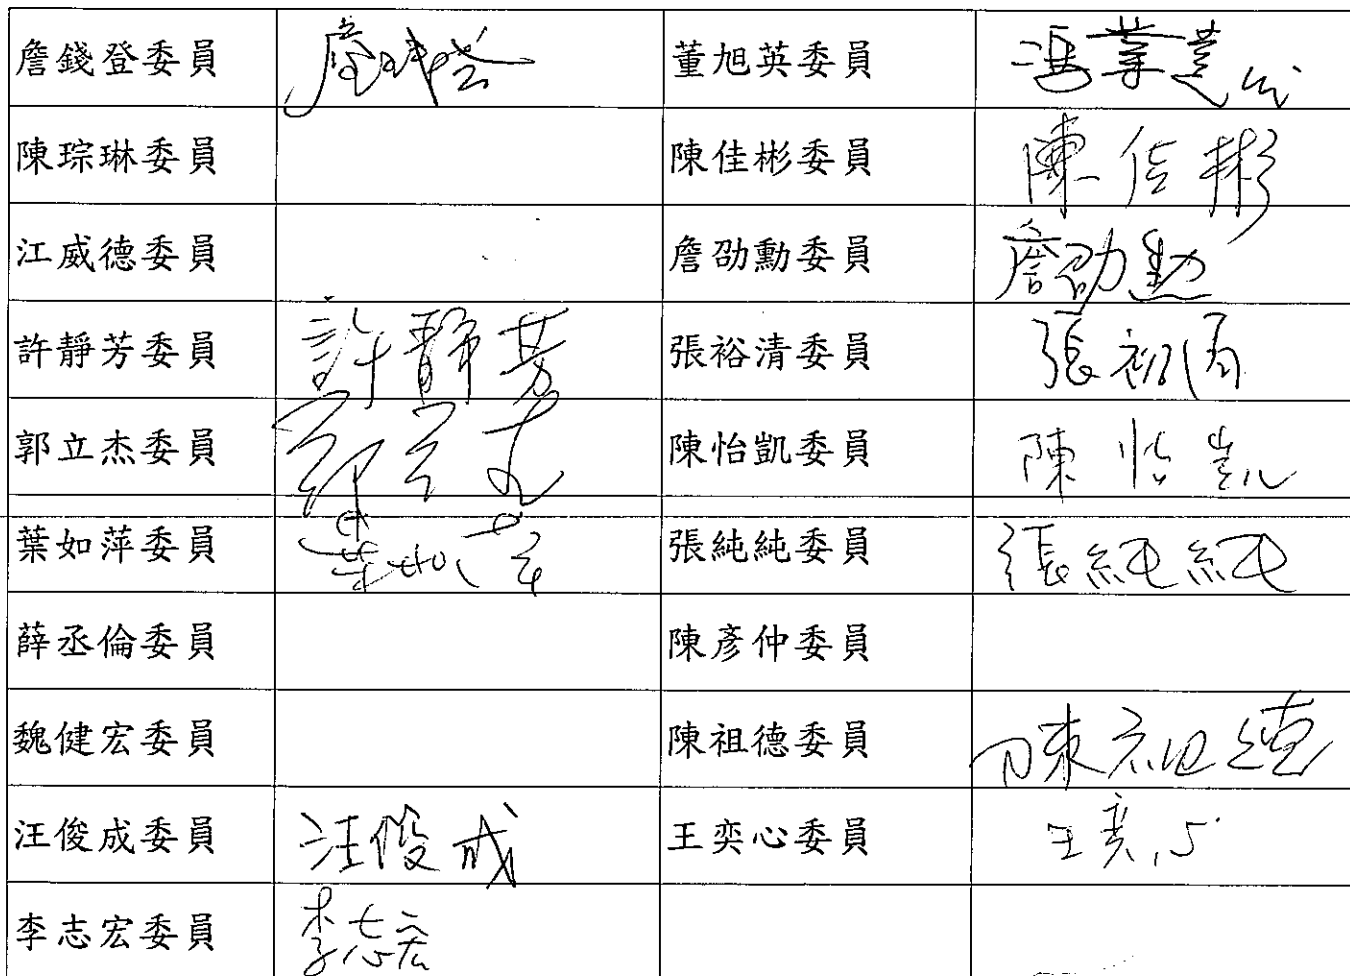 詹錢登委員 詹錢登 董旭英委員 馮業達代
陳琮琳委員 陳佳彬委員 陳佳彬
江威德委員 詹劭勳委員 詹劭勳
許靜芳委員 許靜芳 張裕清委員 張裕清
郭立杰委員 郭立杰 陳怡凱委員 陳怡凱
葉如萍委員 葉如萍 張純純委員 張純純
薛丞倫委員 陳彥仲委員
魏健宏委員 陳祖德委員 陳祖德
汪俊成委員 汪俊成 王奕心委員 王奕心
李志宏委員 李志宏